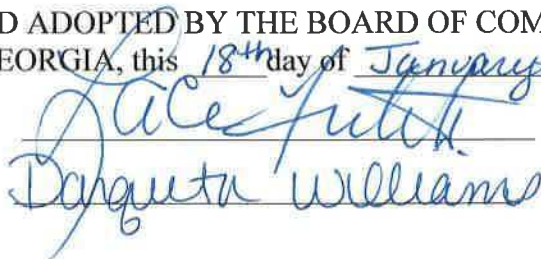 D ADOPTED BY THE BOARD OF COM
EORGIA, this 18th day of January
Darqueta Williams